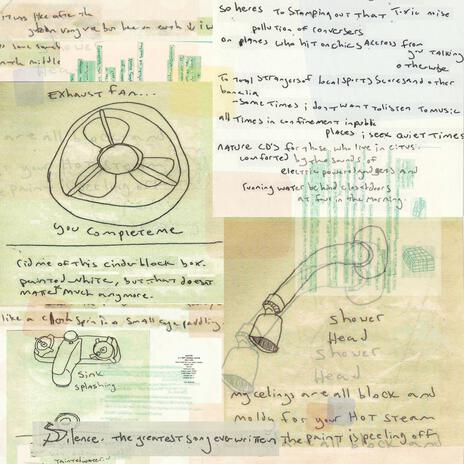 after the
but here on earth i
the middle
EXHAUST FAN...
YOU COMPLETE ME
rid me of this cinder block box.
painted white, but that doesn't
matter much anymore.
like a spin in a small cage paddling
SINK
splashing
Silence. the greatest song ever written
so heres to stamping out that toxic noise
pollution of conversers
on planes who hit on chics across from
you talking
otherwise
To total strangers of local sports scores and other
banalia
- some times i dont want to listen to music
all times in confinement in public
places i seek quiet times
nature CD's for those who live in cities
comforted by the sounds of
electric powered gadgets and
running water behind closed doors
at four in the morning.
shower
Head
shower
Head
my ceilings are all block and
moldy for your Hot steam
the paint is peeling off